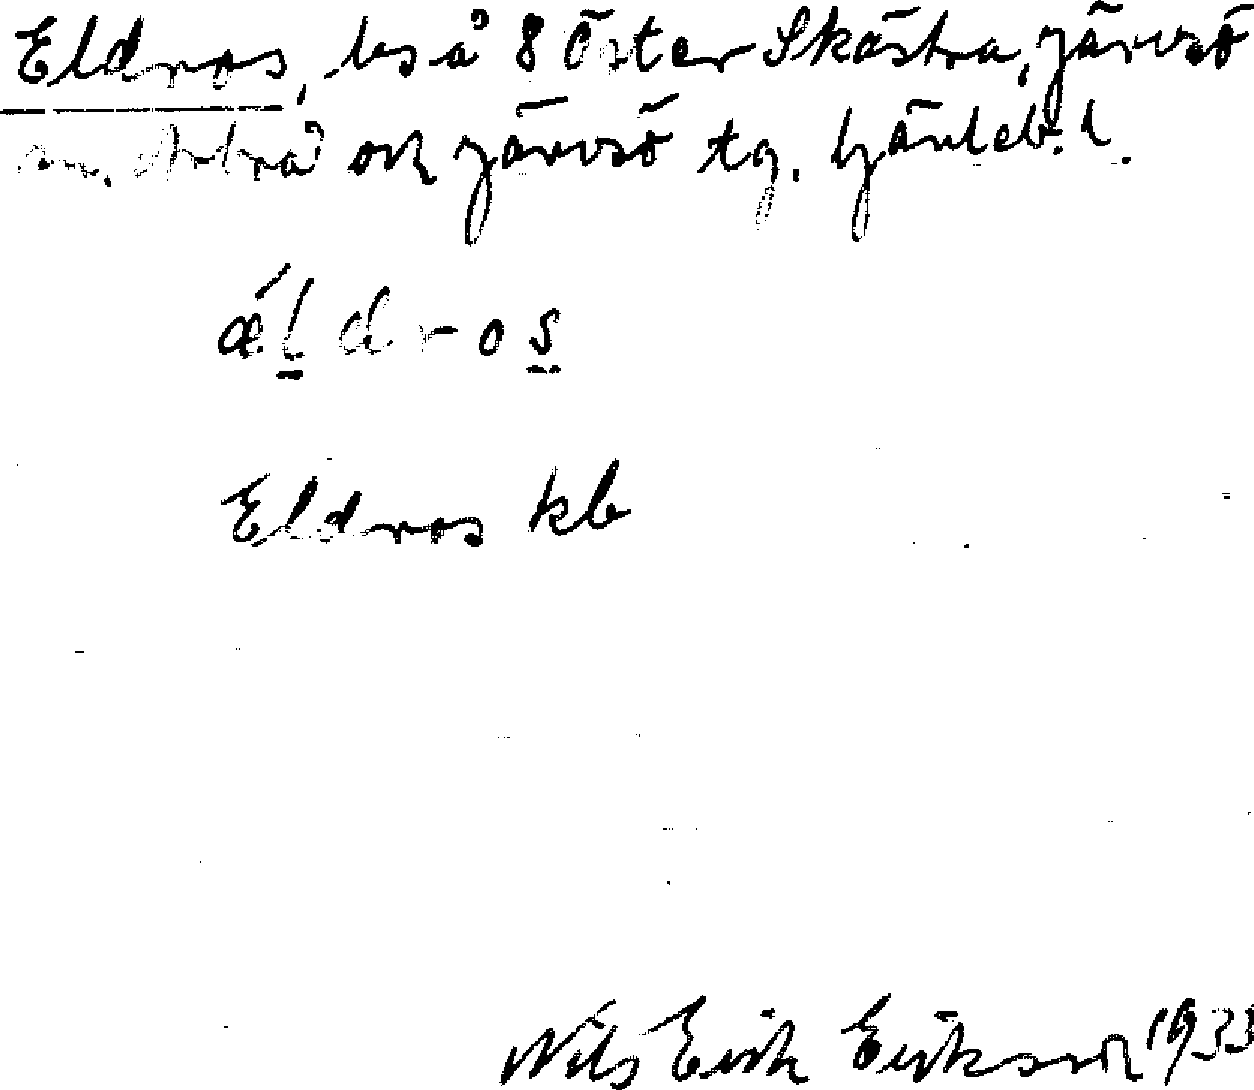 Eldros, ls å 8 Öster Skästra, Järvsö
sn. Arbrå och Järvsö tg. Gävleb. l.
ǽldros
Eldros kb
Nils Erik Eriksson 1933